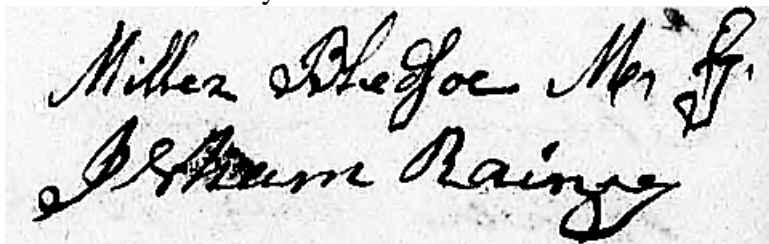 Miller Bledsoe M, G,
Isham Rainey